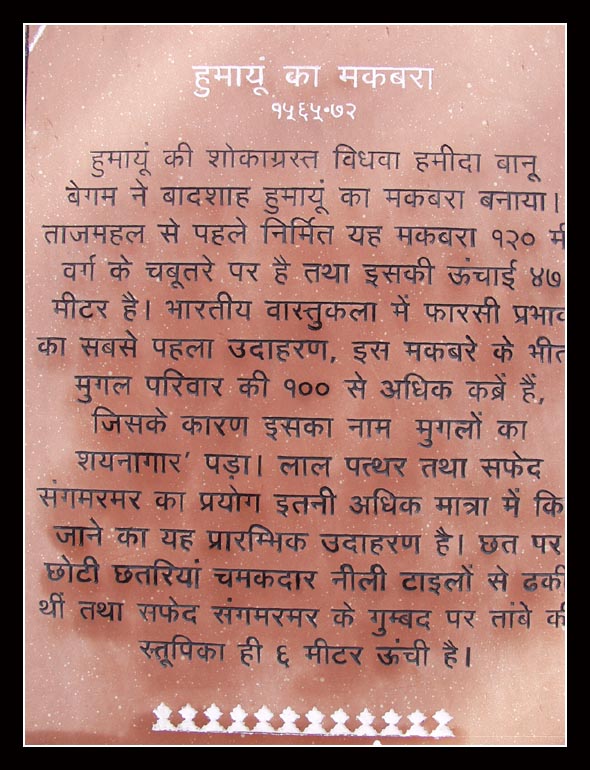 हुमायूं का मकबरा
१५६५-७२
हुमायूं की शोकाग्रस्त विधवा हमीदा बानू
बेगम ने बादशाह हुमायूं का मकबरा बनाया।
ताजमहल से पहले निर्मित यह मकबरा १२०
वर्ग के चबूतरे पर है तथा इसकी ऊंचाई ४७
मीटर है। भारतीय वास्तुकला में फारसी प्रभाव
का सबसे पहला उदाहरण, इस मकबरे के
मुगल परिवार की १०० से अधिक कब्रें हैं,
जिसके कारण इसका नाम मुगलों का
शयनागार' पड़ा। लाल पत्थर तथा सफेद
संगमरमर का प्रयोग इतनी अधिक मात्रा में कि
जाने का यह प्रारम्भिक उदाहरण है। छत पर
छोटी छतरियां चमकदार नीली टाइलों से ढकी
थीं तथा सफेद संगमरमर के गुम्बद पर तांबे की
स्तूपिका ही ६ मीटर ऊंची है।